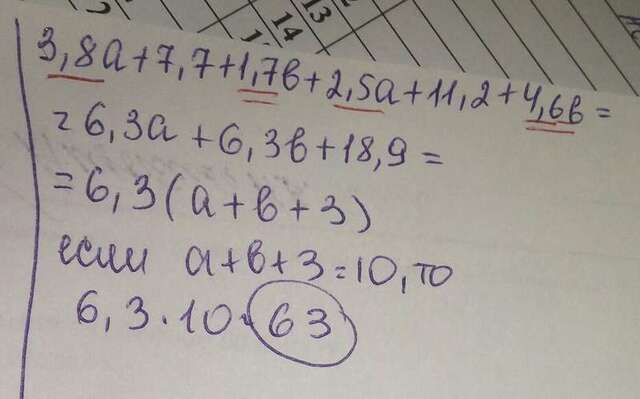 13
14
3,8а+7,7+1,7в+2,5а+11,2+4,6в=
=6,3а+6,3в+18,9=
=6,3(а+в+3)
если а+в+3=10,то
6,3·10=63